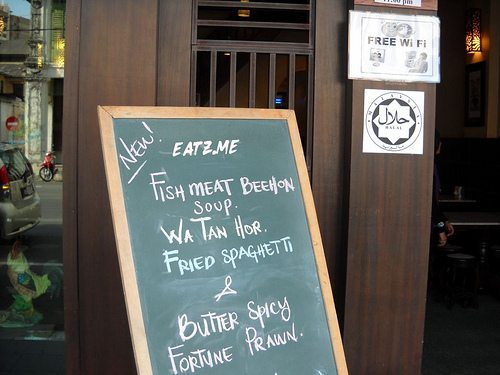 11:00 pm
FREE Wi Fi
حلال
HALAL
NEW!
EATZ.ME
FISH MEAT BEEHON
SOUP.
WA TAN HOR.
FRIED SPAGHETTI
&
BUTTER SPICY
FORTUNE PRAWN.